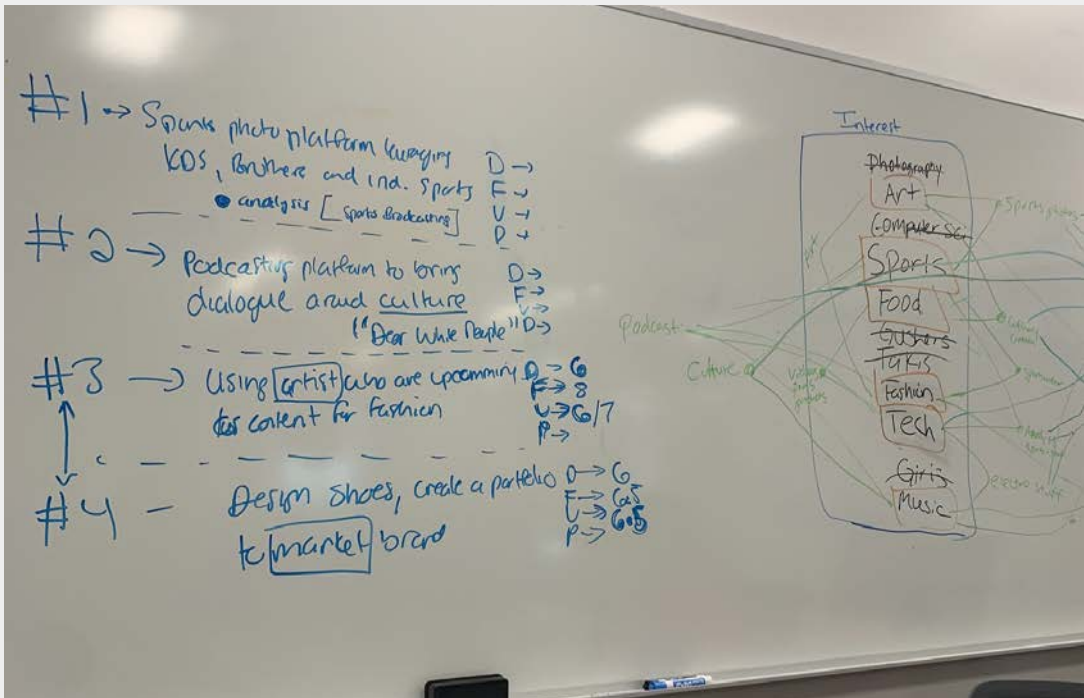 #1 → Sports photo platform leveraging
KDS, Brothere and ind. Sports
• analysis [Sports Broadcasting]
D →
F →
V →
D →
#2 → Podcasting platform to bring
dialogue arud culture
("Dear White People"
D →
F →
V →
D →
#3 → Using artist who are upcomming
content for Fashion
D → 6
F → 8
V → 6/7
P →
#4 - Design Shoes, create a portfolio
to market brand
D → 6
F → 6.5
V → 6.5
P →
Interest
Photography
Art
Computer Sci
Sports
Food
Gushers
Takis
Fashion
Tech
Girls
Music
Podcast
Culture
Sports photos
electro stuff